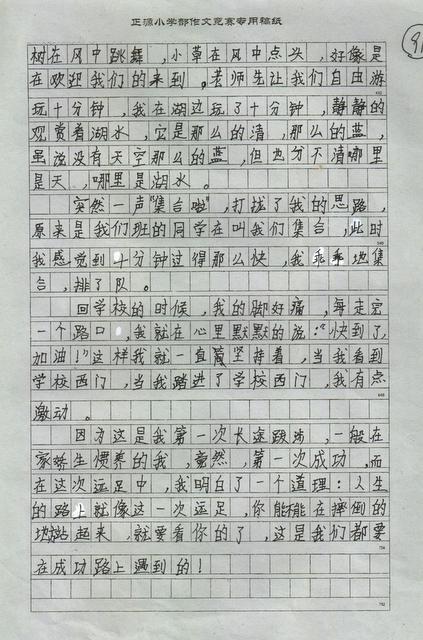 正源小学部作文竞赛专用稿纸
树在风中跳舞，小草在风中点头，好像是
在欢迎我们的来到。老师生让我们自由游
玩十分钟，我在湖边玩了十分钟，静静的
观赏着湖水，它是那么的清，那么的蓝，
虽说没有天空那么的蓝，但也分不清哪里
是天，哪里是湖水。
突然一声"集合啦"，打拢了我的思路，
原来是我们班的同学在叫我们集合，此时
我感觉到十分钟过得那么快，我乖乖地集
合，排了队。
回学校的时候，我的脚好痛，每走完
一个路口，我就在心里默默的说："快到了，
加油！"这样我就一直坚持着，当我看到
学校西门，当我踏进了学校西门，我有点
激动。
因为这是我第一次长途跋涉，一般在
家娇生惯养的我，竟然，第一次成功，而
在这次远足中，我明白了一个道理：人生
的路上就像这一次远足，你能不能在摔倒的
地站起来，就要看你的了，这是我们都要
在成功路上遇到的！